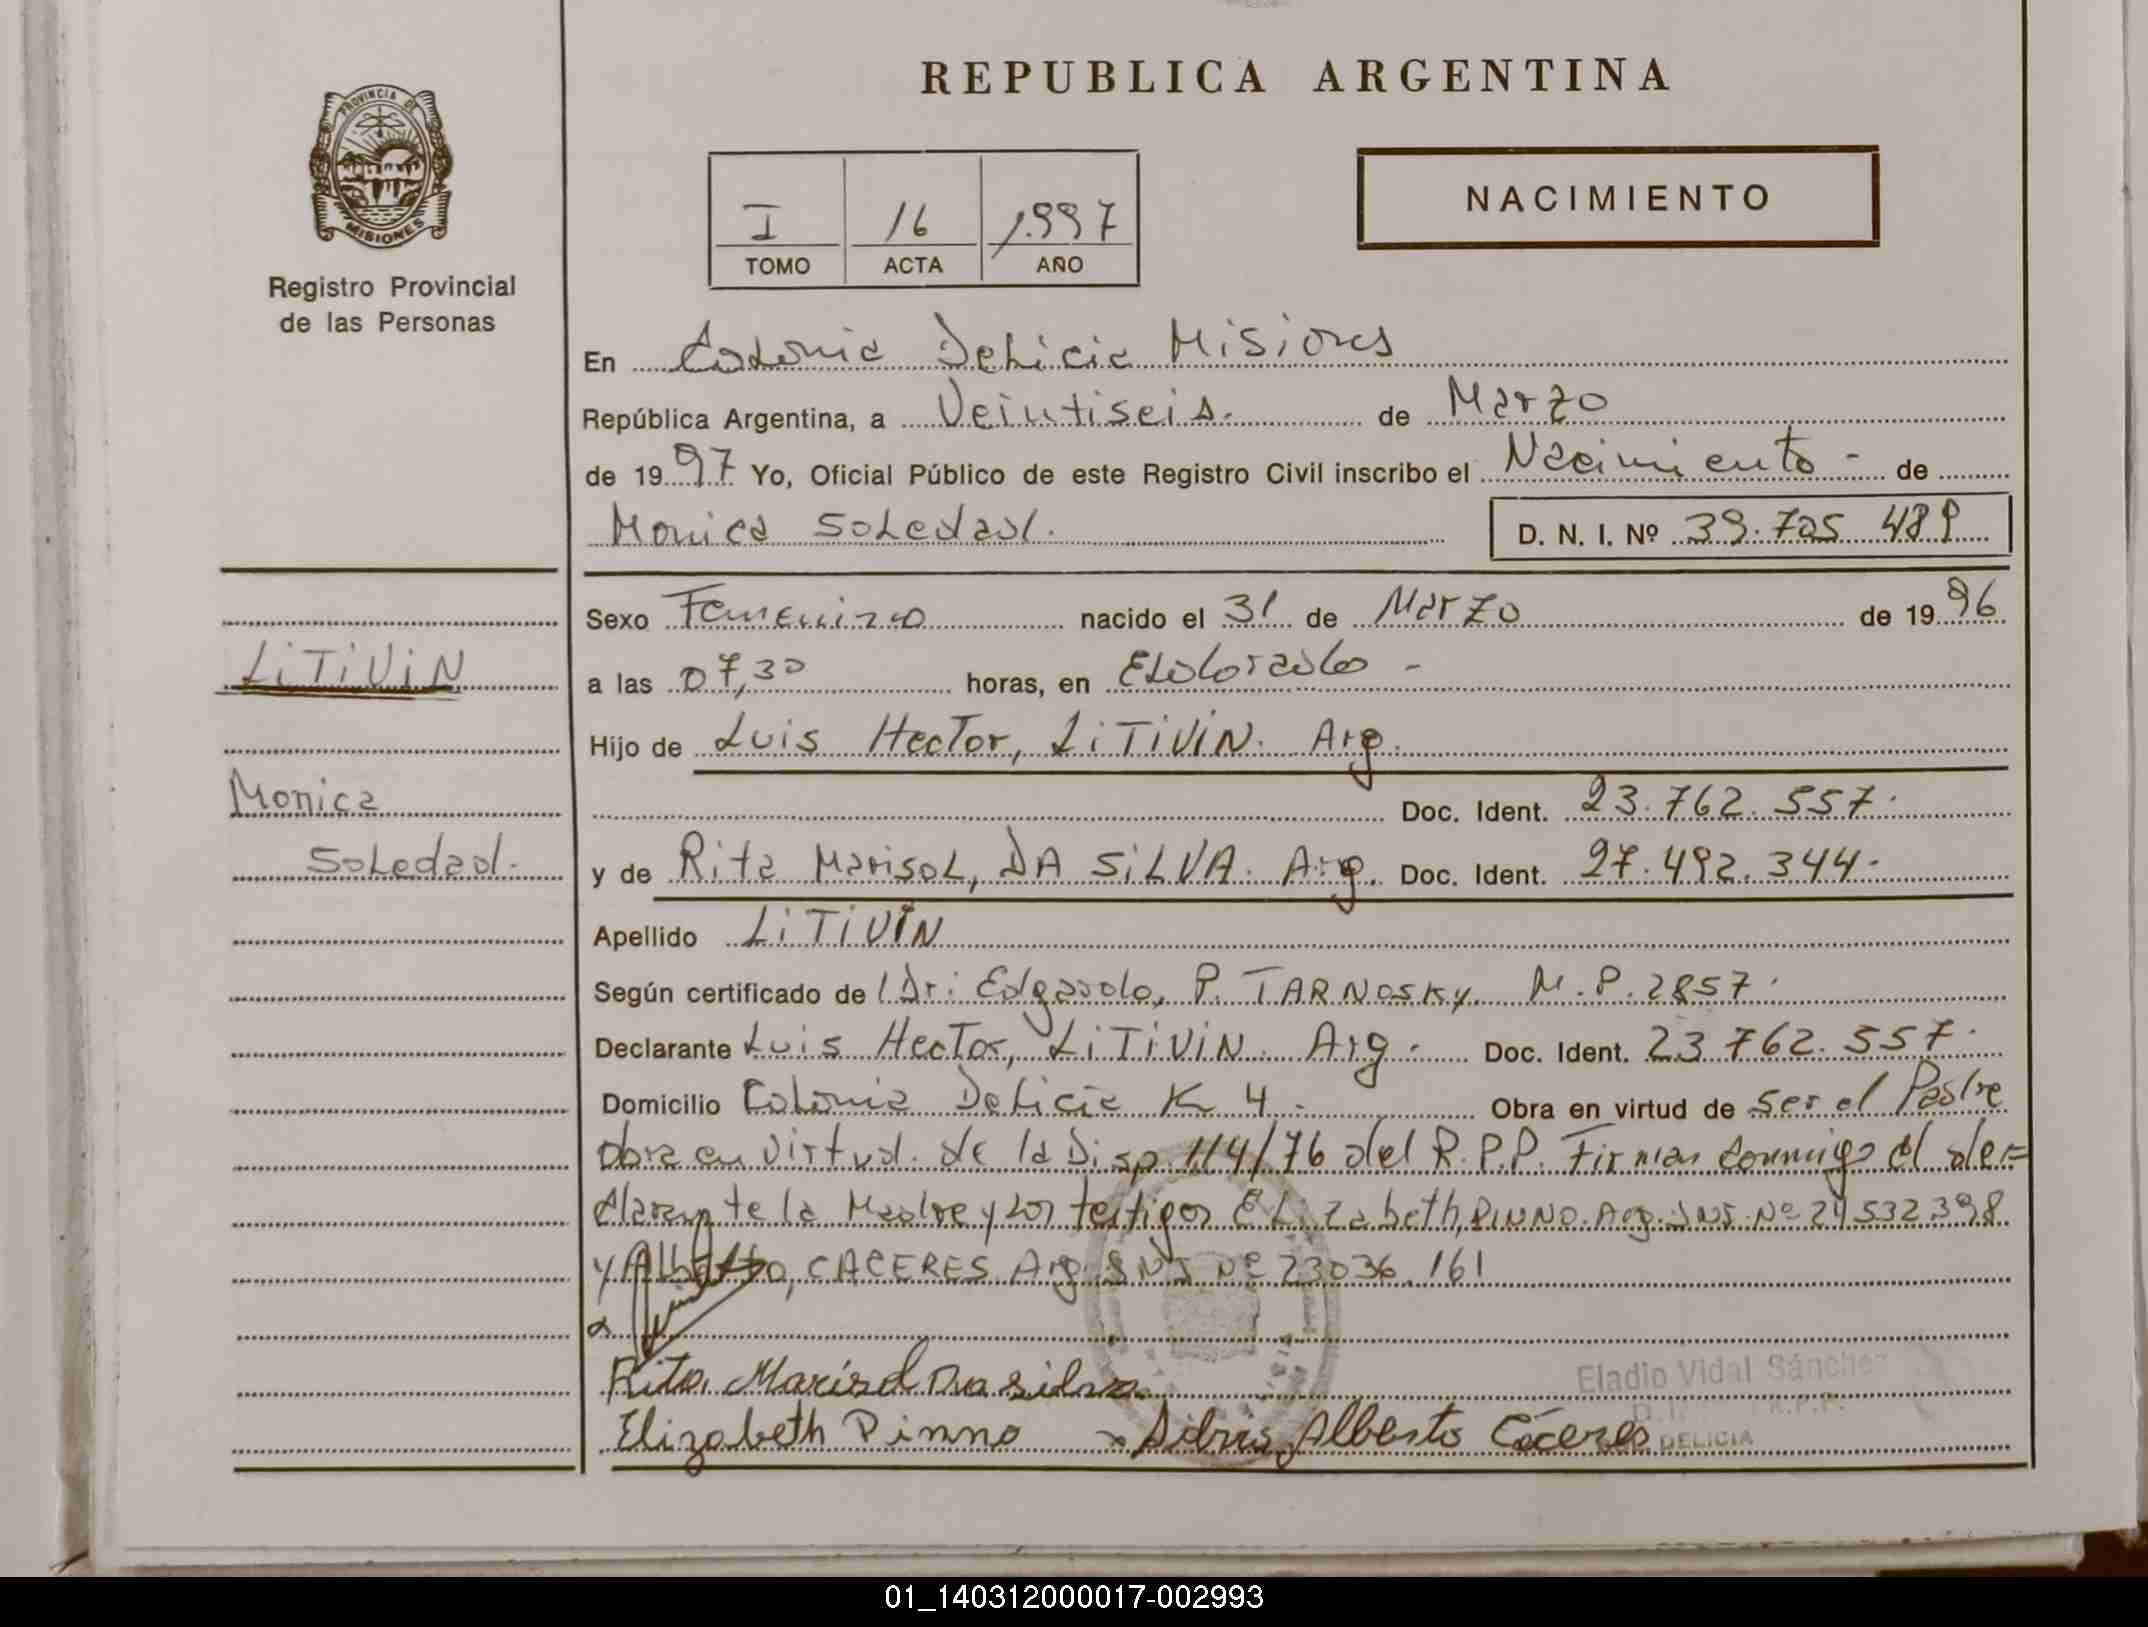 REPUBLICA ARGENTINA
PROVINCIA DE
MISIONES
Registro Provincial
de las Personas
NACIMIENTO
I 16 1.997
TOMO ACTA AÑO
En Colonia Delicia Misiones
República Argentina, a Veintiseis. de Marzo
de 1997 Yo, Oficial Público de este Registro Civil inscribo el Nacimiento - de
Monica Soledad. D. N. I. Nº 39.705 489
Sexo Femenino nacido el 31 de Marzo de 1996
a las 07,30 horas, en Eldorado -
Hijo de Luis Hector, LiTiViN. Arg.
Doc. Ident. 23.762.557.
y de Rita Marisol, DA SiLVA. Arg. Doc. Ident. 27.492.344.
Apellido LiTiViN
Según certificado de l Dr: Edgardo, P. TARNOSKY. M.P. 2857.
Declarante Luis Hector, LiTiViN. Arg. Doc. Ident. 23.762.557.
Domicilio Colonia Delicia K 4 - Obra en virtud de ser el Padre
obra en virtud. de la Disp. 114/76 del R.P.P. Firman conmigo el de=
clarante la Madre y los testigos Elizabeth, PINNO. Arg. DNI. Nº 24.532.398
y Alberto, CACERES. Arg. DNI Nº 23.036.161
Rita Marisol Da silva
Elizabeth Pinno Alberto Cáceres
Eladio Vidal Sánchez
R.P.P.
DELICIA
LiTiViN
Monica
Soledad.
01_140312000017-002993